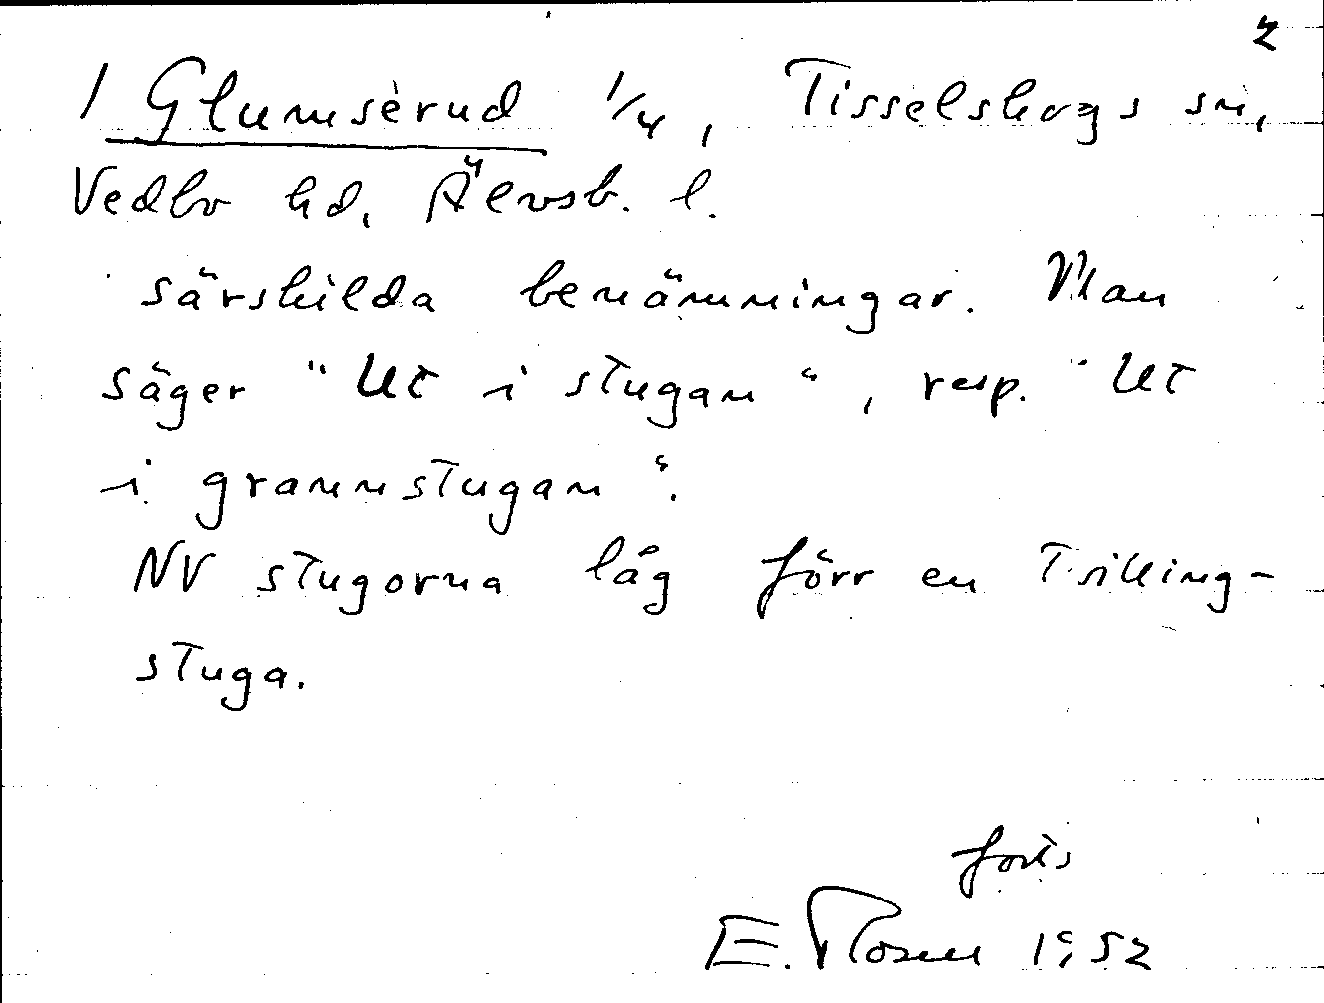 2
1 Glumserud 1/4, Tisselskogs sn,
Vedbo hd, Älvsb. l.
särskilda benämningar. Man
säger "Ut i stugan", resp. "Ut
i grannstugan".
NV stugorna låg förr en Trilling-
stuga.
forts
E. Rosen 1952